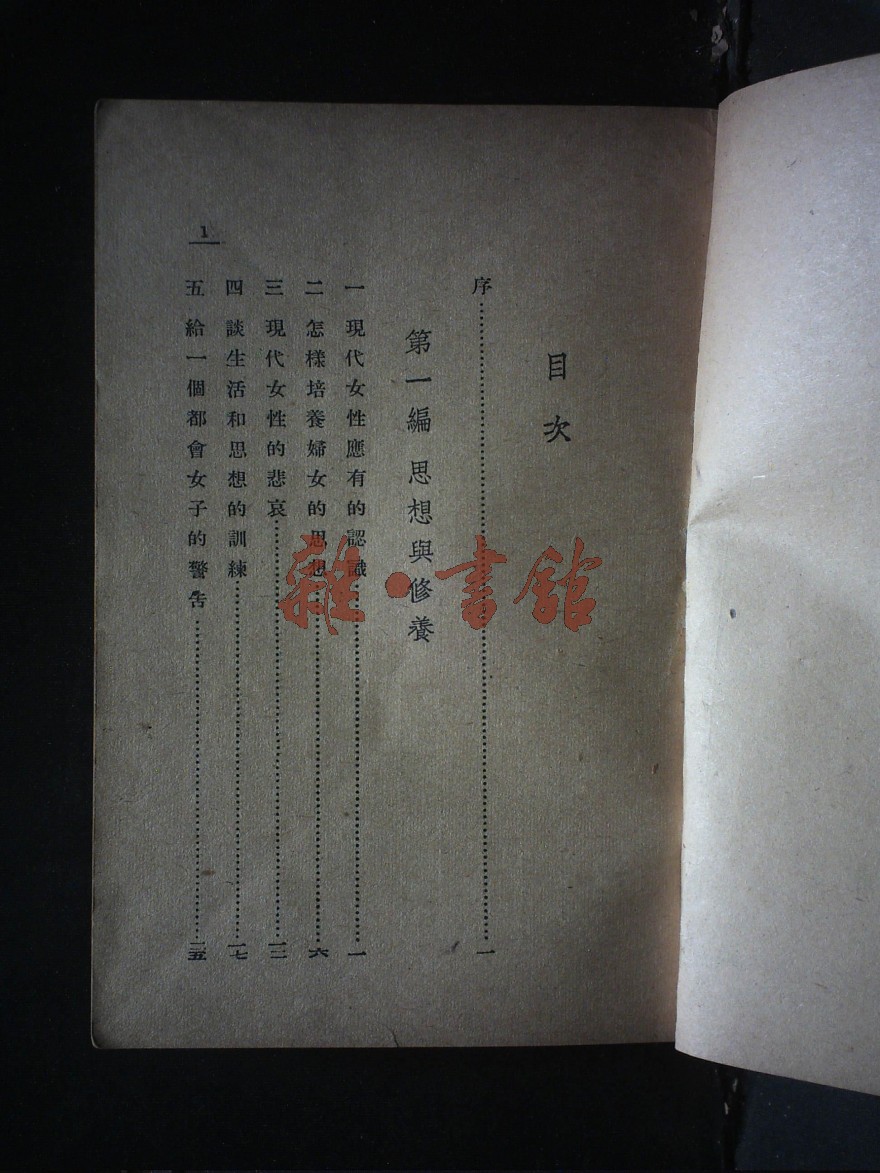 目次
序……一
第一編 思想與修養
一 現代女性應有的認識……一
二 怎樣培養婦女的思想……六
三 現代女性的悲哀……一二
四 談生活和思想的訓練……一七
五 給一個都會女子的警告……二五
1
雜·書館